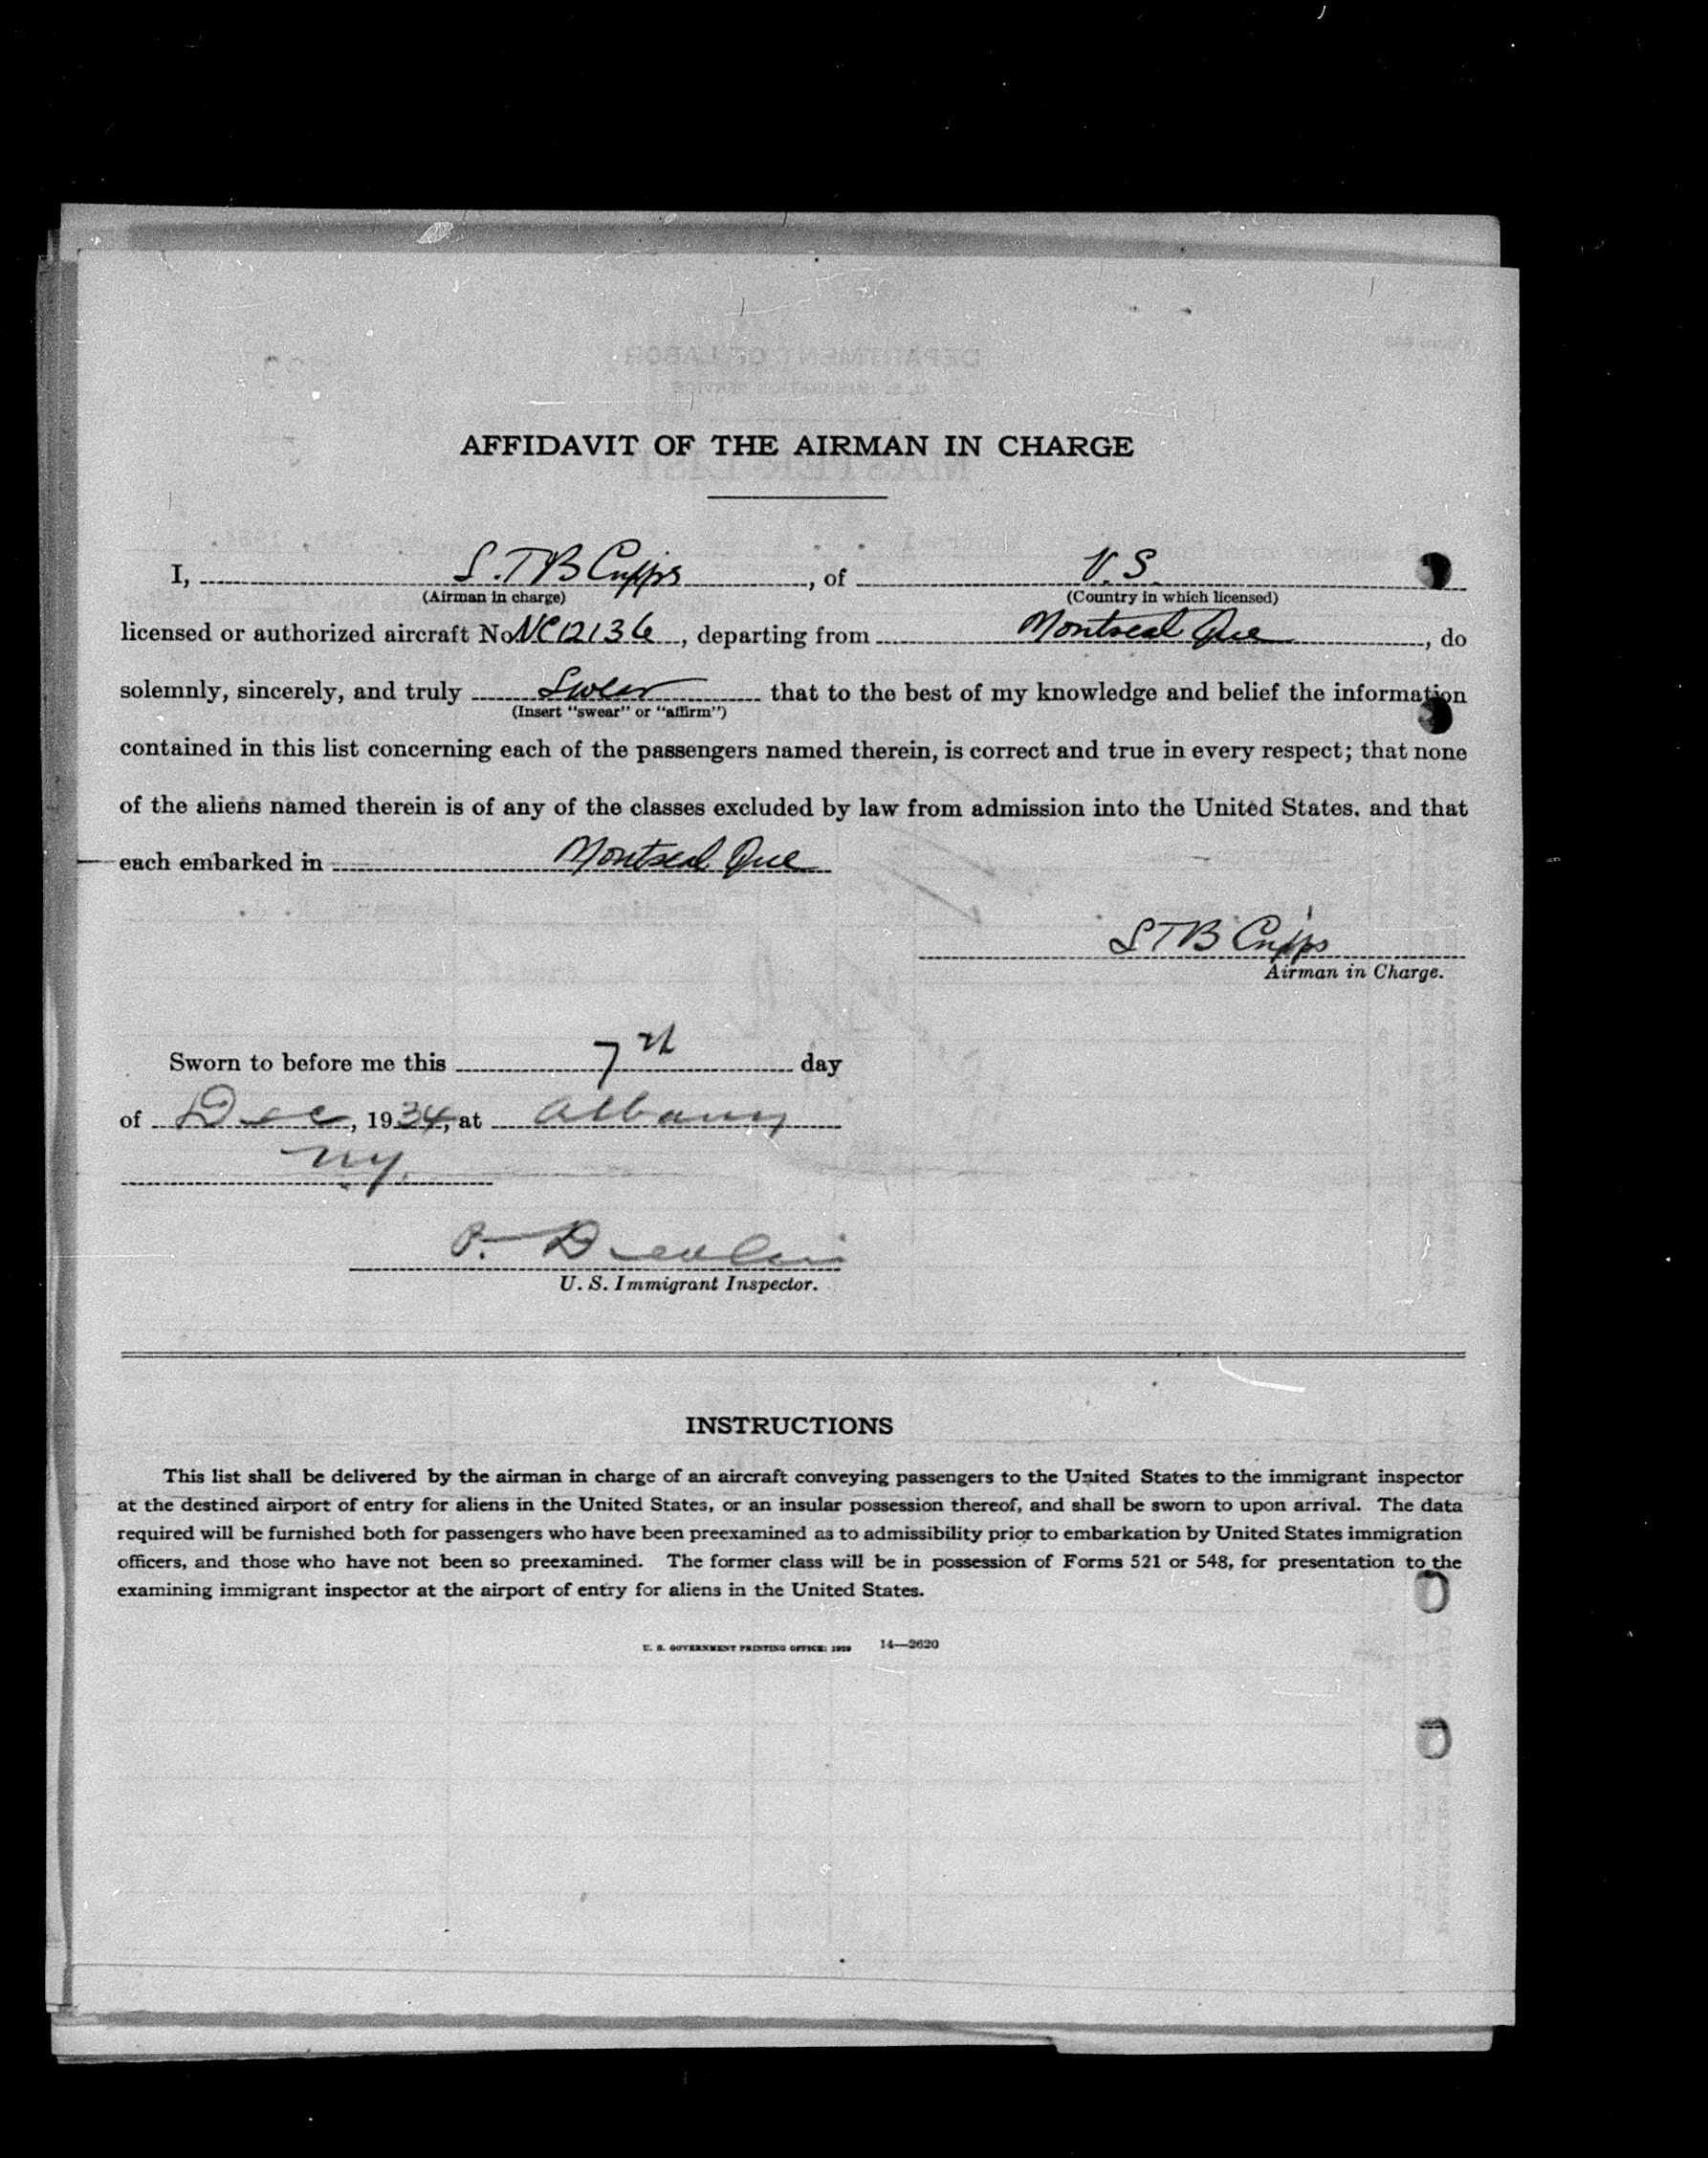 AFFIDAVIT OF THE AIRMAN IN CHARGE
I, S. T B Cupps, of U. S.
(Airman in charge) (Country in which licensed)
licensed or authorized aircraft No. NC12136, departing from Montreal Que, do
solemnly, sincerely, and truly Swear that to the best of my knowledge and belief the information
(Insert "swear" or "affirm")
contained in this list concerning each of the passengers named therein, is correct and true in every respect; that none
of the aliens named therein is of any of the classes excluded by law from admission into the United States. and that
each embarked in Montreal Que
S T B Cupps
Airman in Charge.
Sworn to before me this 7th day
of Dec, 1934, at Albany
NY.
P.
U. S. Immigrant Inspector.
INSTRUCTIONS
This list shall be delivered by the airman in charge of an aircraft conveying passengers to the United States to the immigrant inspector
at the destined airport of entry for aliens in the United States, or an insular possession thereof, and shall be sworn to upon arrival. The data
required will be furnished both for passengers who have been preexamined as to admissibility prior to embarkation by United States immigration
officers, and those who have not been so preexamined. The former class will be in possession of Forms 521 or 548, for presentation to the
examining immigrant inspector at the airport of entry for aliens in the United States.
U. S. GOVERNMENT PRINTING OFFICE: 1929 14—2620